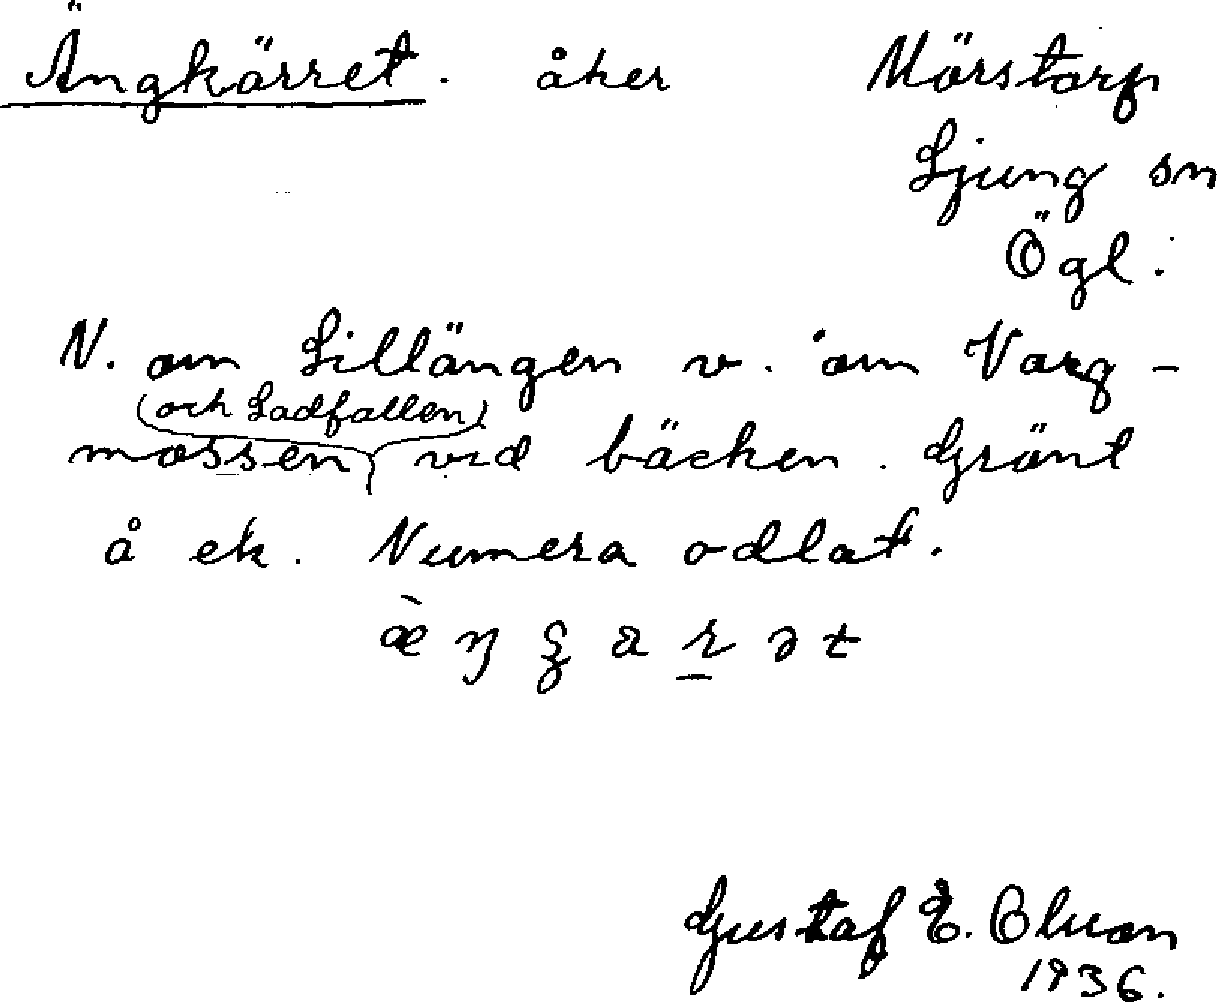 Ängkärret. åker Mörstorp
Ljung sn
Ögl.
N. om Lillängen v. om Varg-
(och Ladfallen)
mossen vid bäcken. Gränt
å ek. Numera odlat.
Gustaf E.
1936.